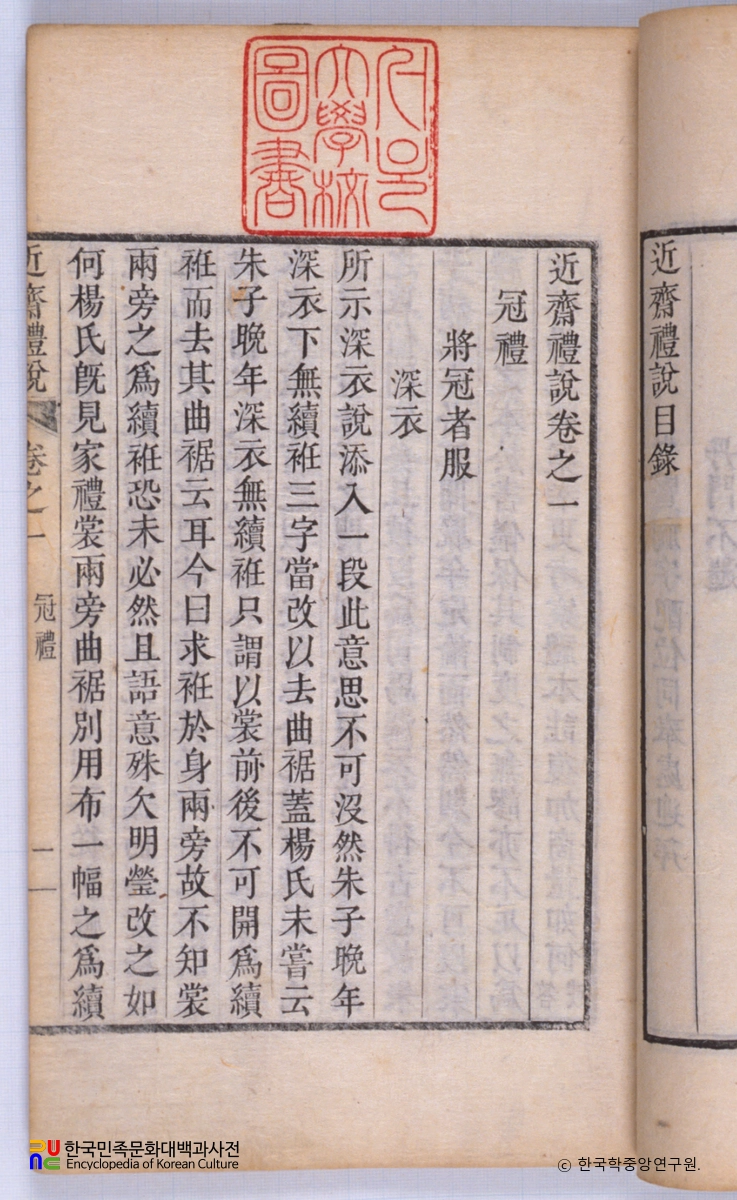 近齋禮說目錄
近齋禮說卷之一
冠禮
將冠者服
深衣
所示深衣說添入一段此意思不可沒然朱子晚年
深衣下無續袵三字當改以去曲裾蓋楊氏未嘗云
朱子晚年深衣無續袵只謂以裳前後不可開爲續
袵而去其曲裾云耳今曰求袵於身兩旁故不知裳
兩旁之爲續袵恐未必然且語意殊欠明瑩改之如
何楊氏旣見家禮裳兩旁曲裾別用布一幅之爲續
近齋禮說 卷之一 冠禮 一
大學校
圖書
한국민족문화대백과사전
Encyclopedia of Korean Culture
© 한국학중앙연구원.